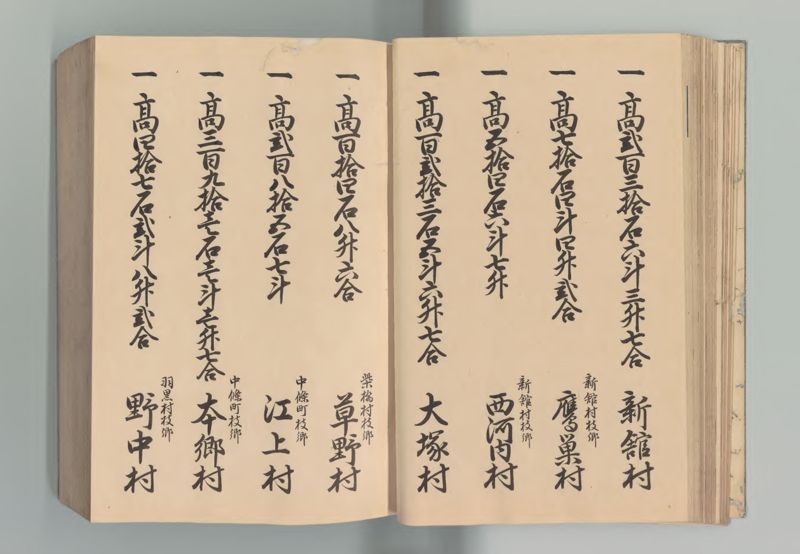 一 高弐百三拾石六斗三升七合 新舘村
一 高七拾石四斗四升弐合 新舘村枝郷 鷹巣村
一 高五拾四石六斗七升 新舘村枝郷 西河内村
一 高百弐拾三石五斗六升七合 大塚村
一 高百拾四石八升六合 柴橋村枝郷 草野村
一 高弐百八拾五石七斗 中條町枝郷 江上村
一 高三百九拾壱石壱斗壱升七合 中條町枝郷 本郷村
一 高四拾七石弐斗八升弐合 羽黒村枝郷 野中村